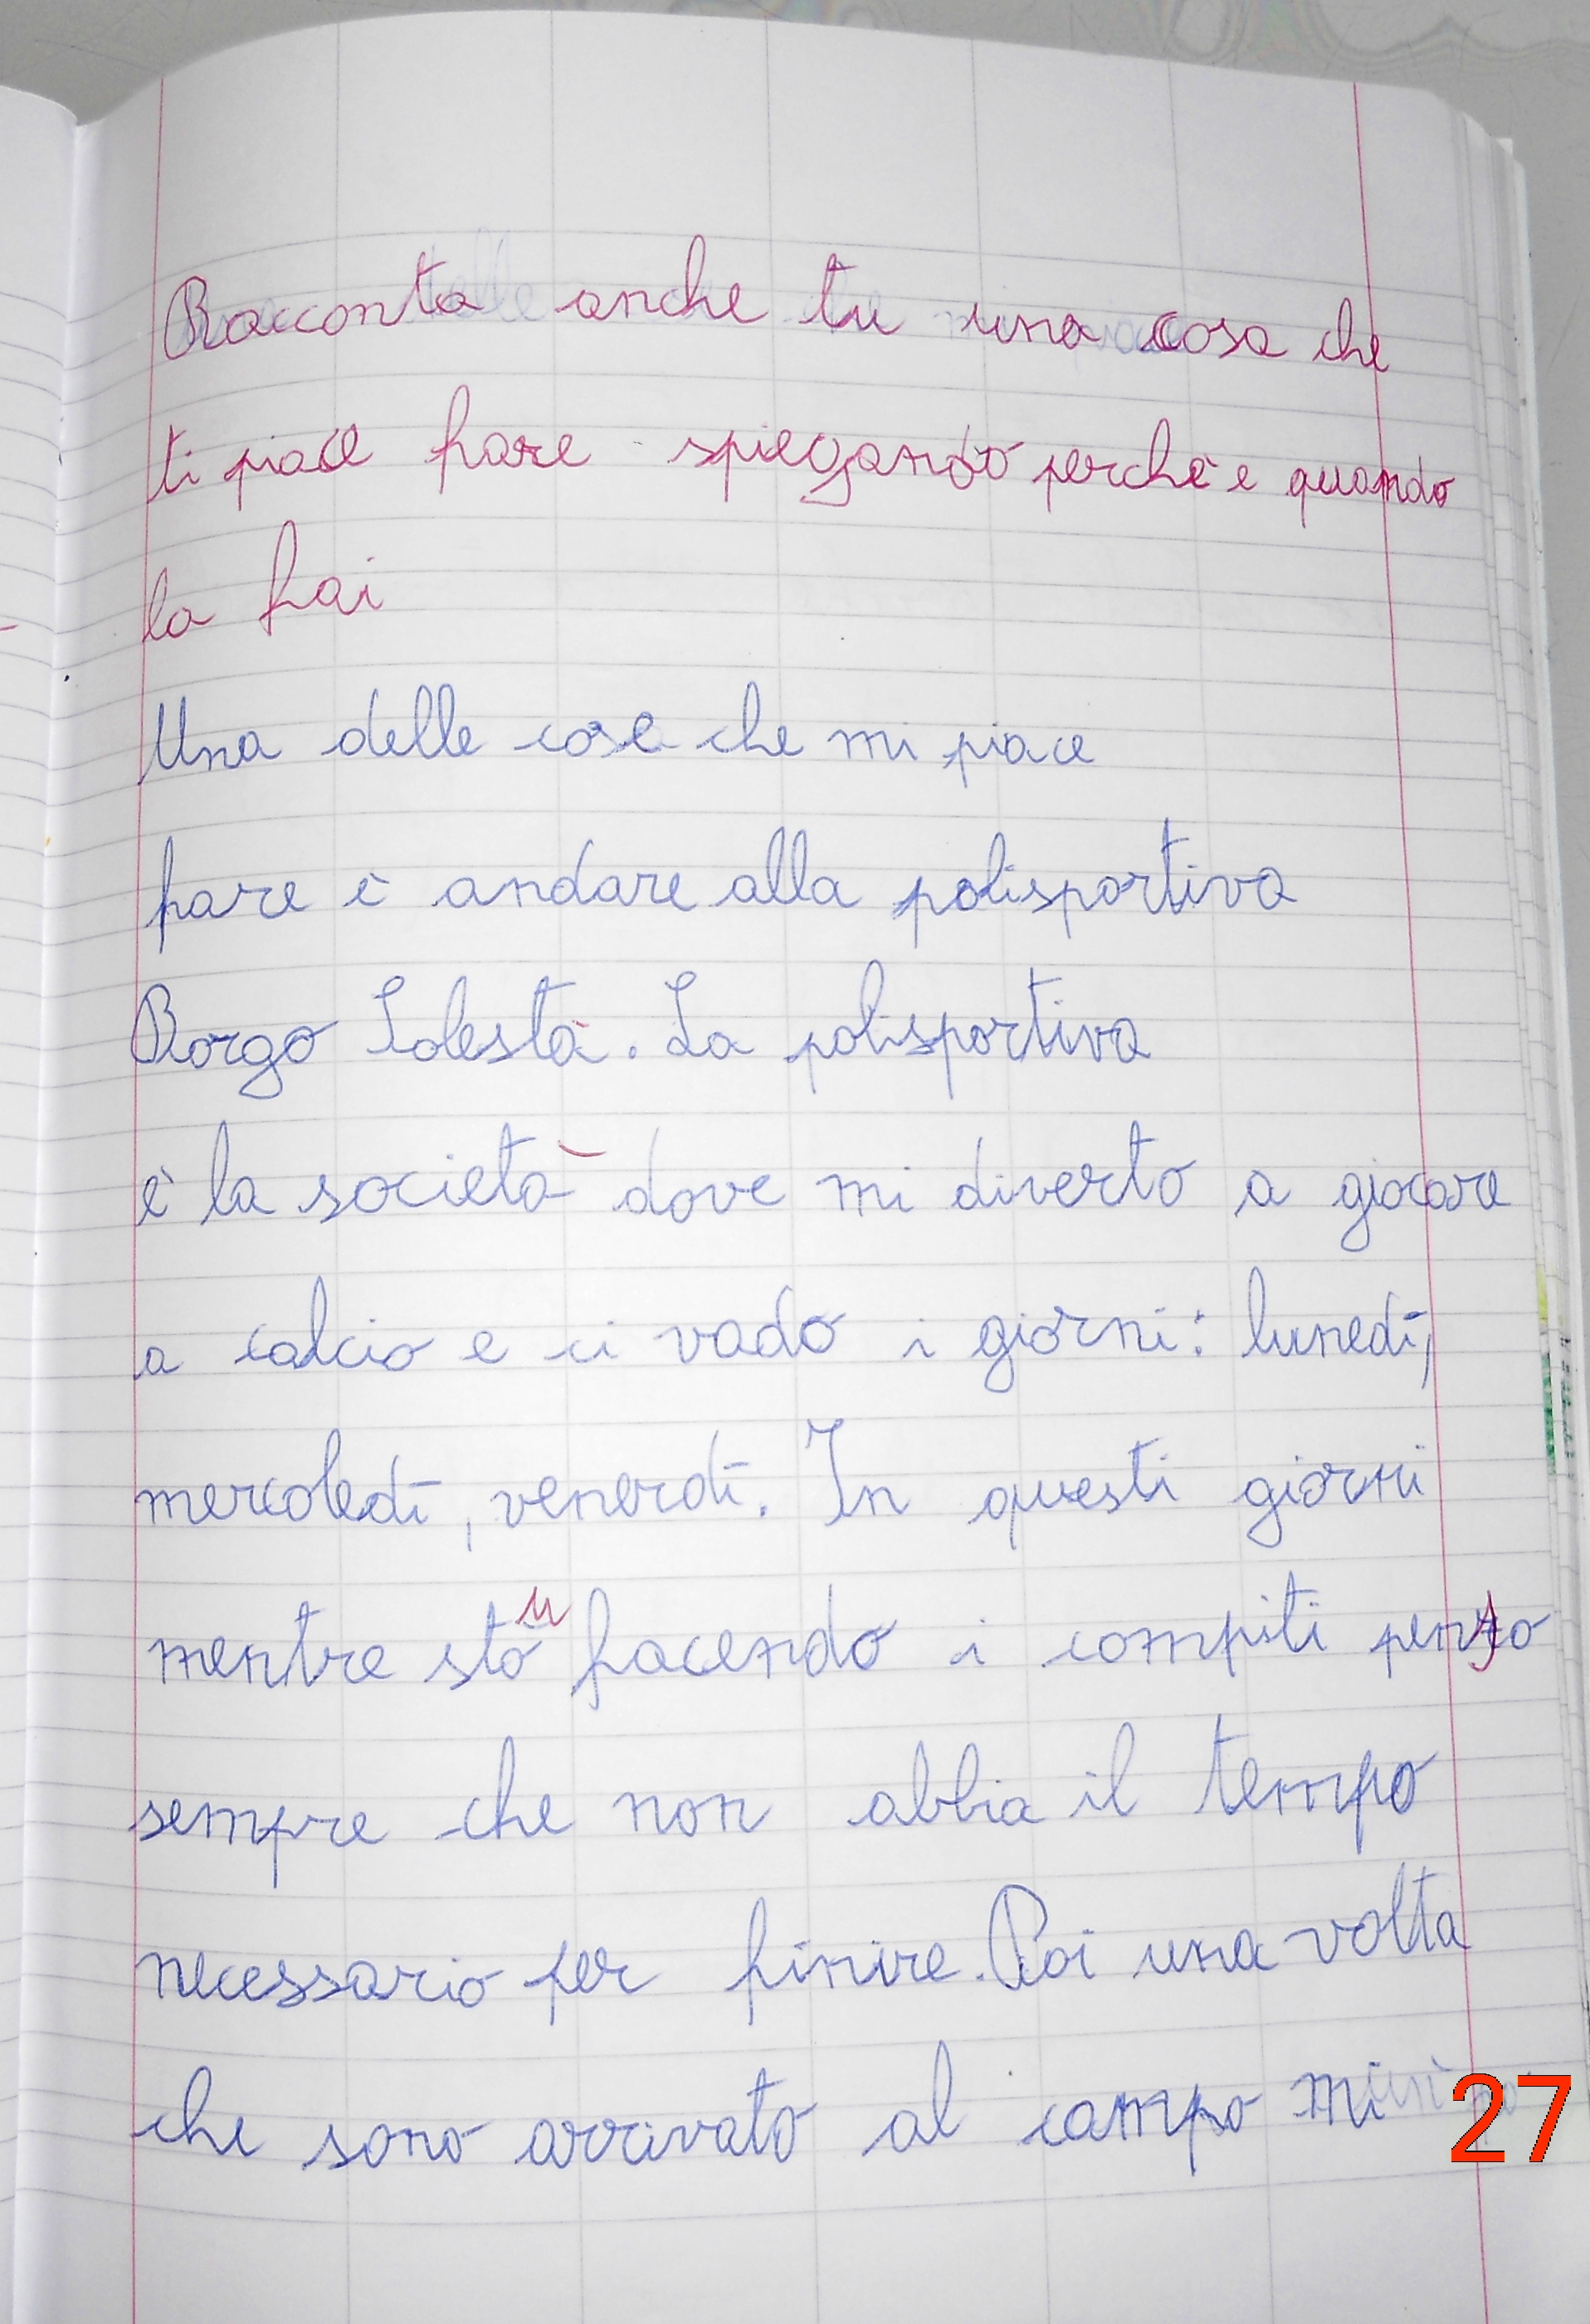 Racconta anche tu una cosa che
ti piace fare spiegando perchè e quando
la fai
Una delle cose che mi piace
fare è andare alla polisportiva
Borgo Solestà. La polisportiva
è la società dove mi diverto a giocare
a calcio e ci vado i giorni: lunedì,
mercoledì, venerdì. In questi giorni
mentre sto facendo i compiti penso
sempre che non abbia il tempo
necessario per finire. Poi una volta
che sono arrivato al campo mi
27